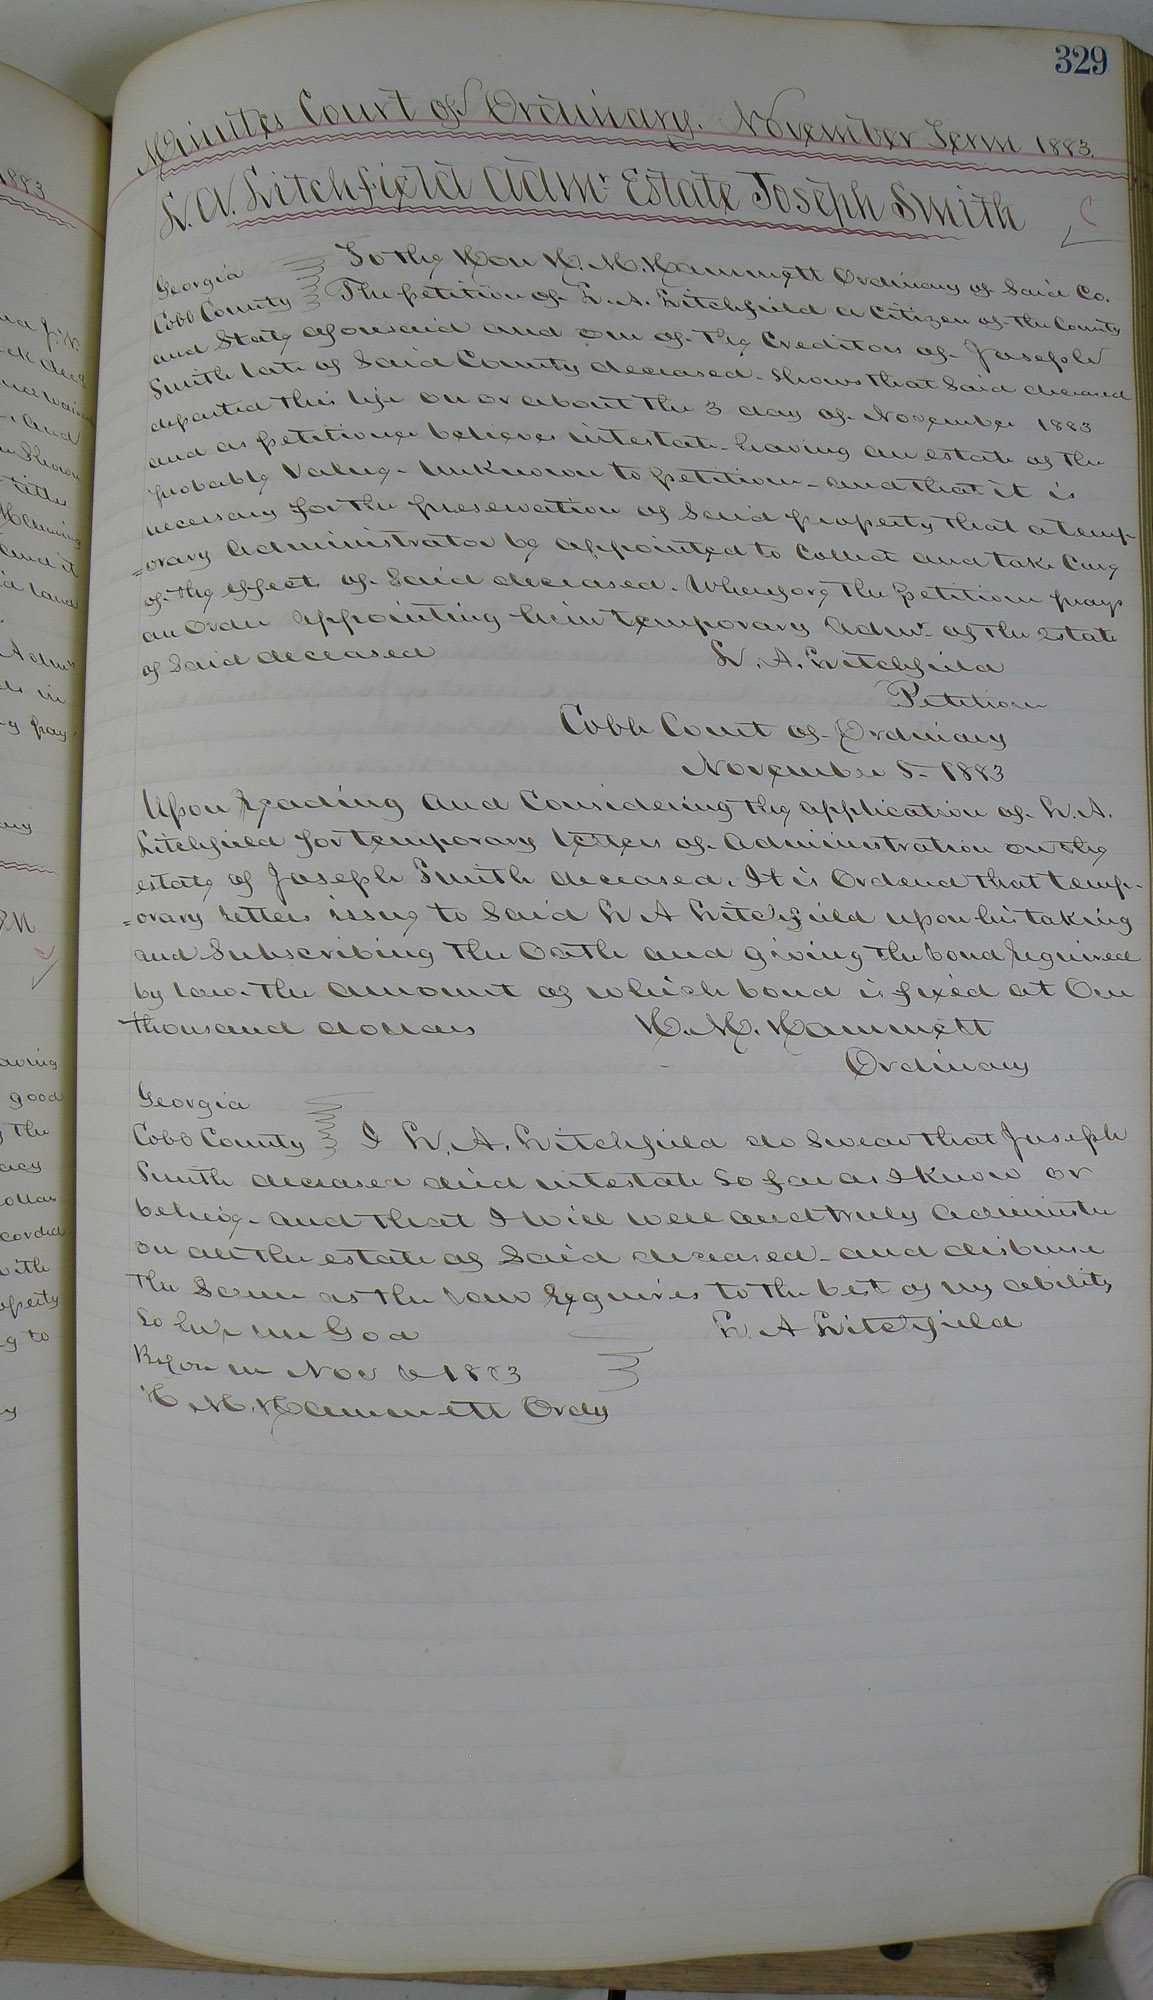 329
Minutes Court of Ordinary. November Term 1883.
L. A. Litchfield Admr Estate Joseph Smith
Georgia
Cobb County
To the Hon H. M. Hammett Ordinary of Said Co.
The petition of L. A. Litchfield a Citizen of the County
and State aforesaid and one of the Creditors of Joseph
Smith late of Said County deceased. Shows that Said deceased
departed this life on or about the 3 day of November 1883
and as petitioner believes intestate having an estate of the
probable Value - Unknown to petitioner - and that it is
necessary for the preservation of Said property that a temp-
=orary Administrator be appointed to Collect and take Care
of the effects of Said deceased. Wherefore the petitioner prays
an Order appointing him temporary Admr. of the Estate
of Said deceased
L. A. Litchfield
Petitioner
Cobb Court of Ordinary
November 5 - 1883
Upon Reading and Considering the application of L. A.
Litchfield for temporary letters of Administration on the
estate of Joseph Smith deceased. It is Ordered that temp-
=orary letters issue to Said L A Litchfield upon his taking
and Subscribing the Oath and giving the bond Required
by law. the amount of which bond is fixed at One
thousand dollars
H. M. Hammett
Ordinary
Georgia
Cobb County
I L. A. Litchfield do Swear that Joseph
Smith deceased died intestate So far as I Know or
believe - and that I will well and truly Administer
on all the estate of Said deceased - and disburse
the Same as the law Requires to the best of my ability
So help me God
L. A Litchfield
Before me Nov 6 1883
H. M. Hammett Ordy
1883